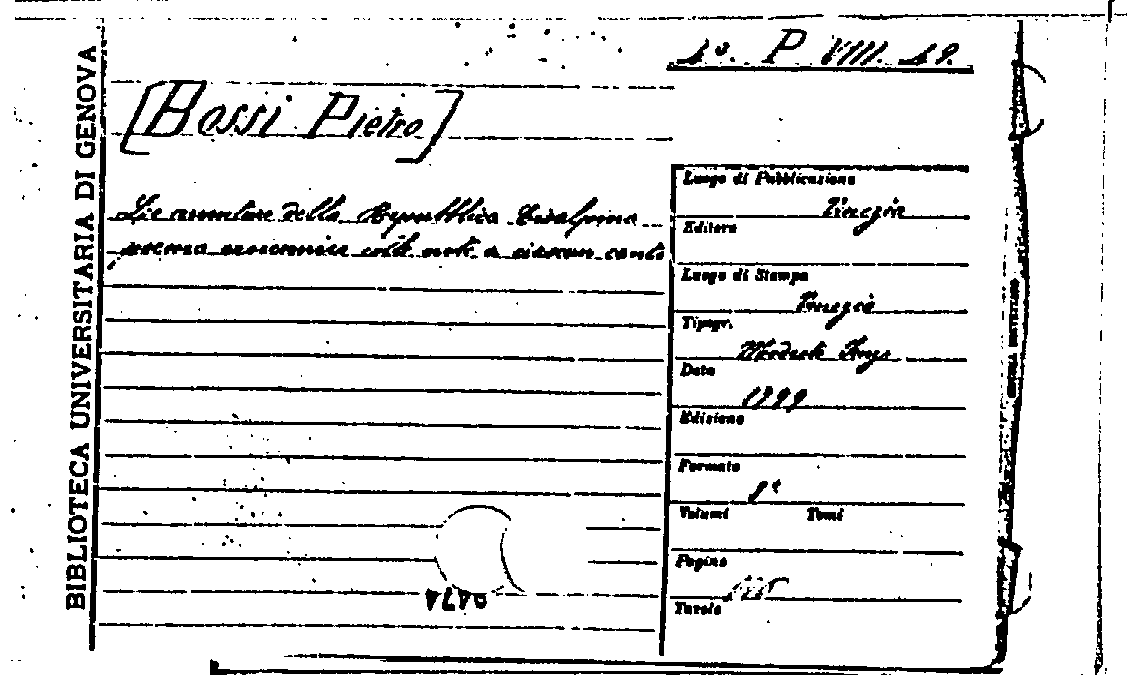 BIBLIOTECA UNIVERSITARIA DI GENOVA
4º. P VIII. 49.
[Bossi Pietro]
Le avventure della Repubblica Cisalpina
poema eroicomico colle note a ciascun canto
Luogo di Pubblicazione
Venezia
Editore
Luogo di Stampa
Venezia
Tipogr.
Data
1799
Edizione
Formato
8º
Volumi Tomi
Pagine
Tavole